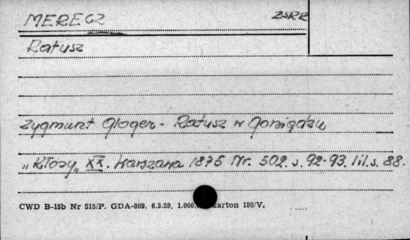 MERECZ ZSRR
Ratusz
Zygmunt Gloger - Ratusz w Goniądzu
"Kłosy" XX. Warszawa 1875 Nr. 502. s. 92-93. lil. s. 88.
CWD B-15b Nr 515/P. GDA-809. 6.3.59. 1.000. karton 180/V.